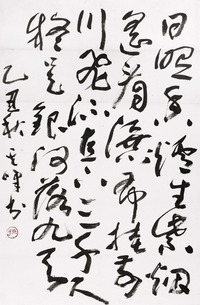 日照香炉生紫烟
遥看瀑布挂前
川飞流直下三千尺
疑是银河落九天
乙丑秋